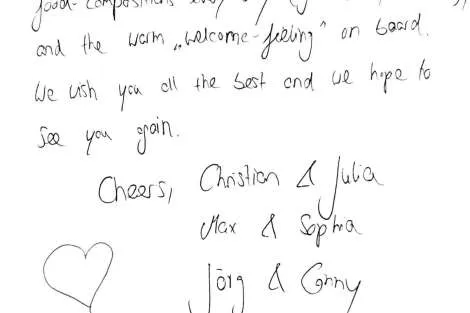 food-compositions every
and the warm „welcome-feeling" on board.
We wish you all the best and we hope to
see you again.
Cheers, Christian & Julia
Max & Sophia
Jörg & Conny